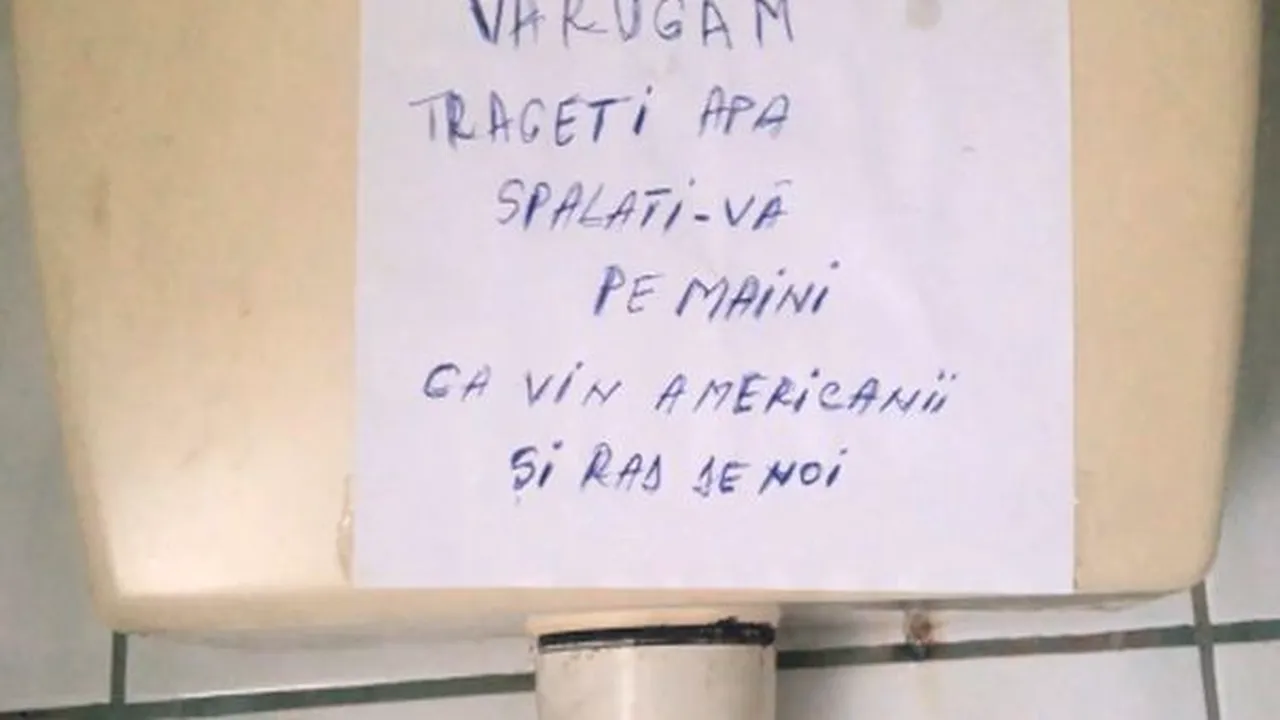 VARUGAM
TRAGETI APA
SPALATI-VĂ
PE MAINI
CA VIN AMERICANII
ȘI RAD DE NOI